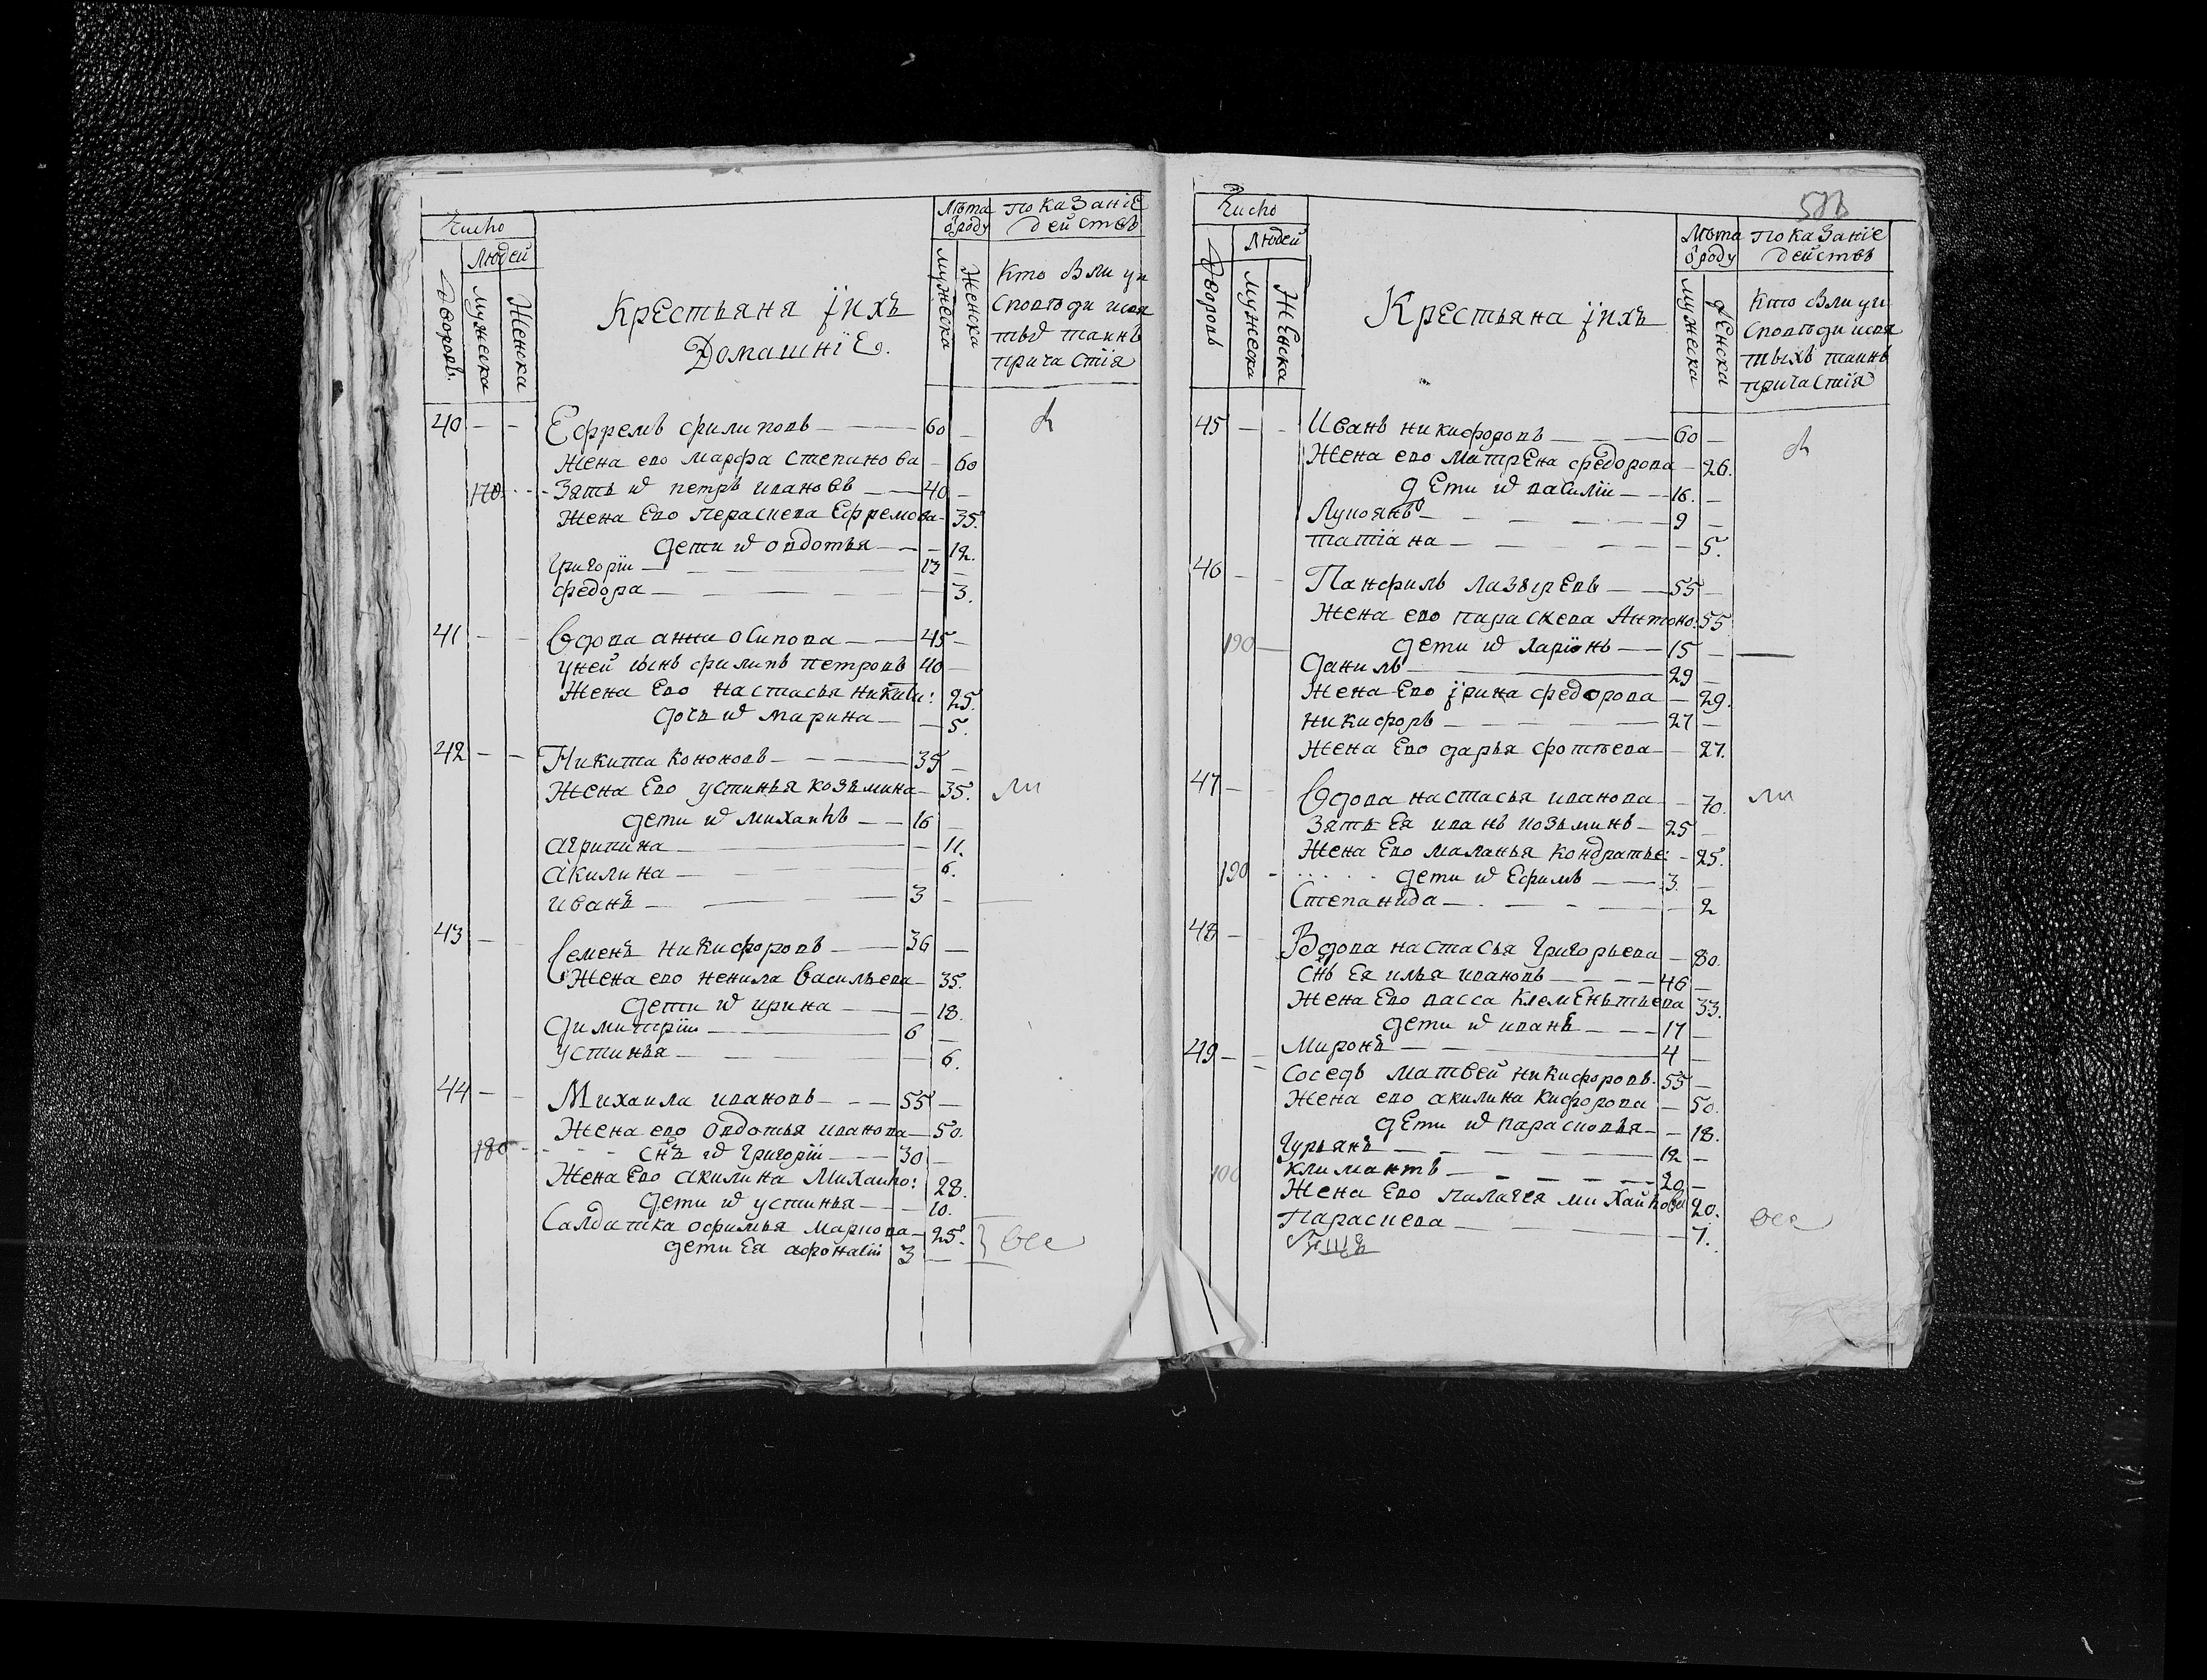 Число
Людей
Дворовъ
мужеска
Женска
Крестьяня їихъ
Домашнїе
Лѣта
ѿроду
мужеска
Женска
показанїе
действъ
кто были уи
споведи исвя
тыѯ таинъ
причастїя
40 - - Ефремъ филиповъ 60 -
жена ево марфа степанова - 60
170 зять иⷯ петръ ивановъ 40 -
жена Ево пераскева Ефремова 35
дети иⷯ овдотья - 12
григорїи 13 -
федора - 3
41 - - Вдова анна осипова 45 -
уней сынъ филипъ петровъ 40 -
жена Ево настасья никити: 25
дочь иⷯ марина - 5
42 - - Никита кононовъ 35 -
жена Ево устинья козьмина - 35
дети иⷯ михаилъ 16 -
агрипина - 11
акилина - 6
иванъ 3 -
43 - - Семенъ никифоровъ 36 -
жена ево ненила васильева - 35
дети иⷯ ирина - 18
димитрїи 6 -
устинья - 6
44 - - Михаила ивановъ 55 -
жена ево овдотья иванова - 50
180 снъ иⷯ григорїи 30 -
жена Ево акилина Михаило: 28
дети иⷯ устинья - 10
Салдатка офимья маркова - 25
дети Ея афонасїи 3 -
все
Число
Людей
Дворовъ
мужеска
Женска
Крестьяна їихъ
Лѣта
ѿроду
мужеска
Женска
показанїе
действъ
кто были уи
споведи исвя
тыхъ таинъ
причастїя
45 - - Иванъ никифоровъ 60 -
жена ево матрена федорова - 26
дети иⷯ василїи 16 -
Лукоянъ 9 -
татїана - 5
46 - - Панфилъ лазыревъ 55 -
жена ево параскева Антоно: 55
190 дети иⷯ ларїонъ 15 -
данилъ 29 -
жена Ево їрина федорова - 29
никифоръ 27 -
жена Ево дарья фотѣева - 27
47 - Вдова настасья иванова - 70
зять Ея иванъ козьминъ 25 -
жена Ево маланья кондратье: - 25
190 дети иⷯ Ефимъ 3 -
Степанида - 2
48 - Вдова настасья григорьева - 80
снъ Ея илья ивановъ 46 -
жена Ево васса клеменьтьева 33
дети иⷯ иванъ 17 -
Миронъ 4 -
49 - - Соседъ матвей никифоровъ 55 -
жена ево акилина кифорова - 50
дети иⷯ парасковья - 18
гурьянъ 12 -
климантъ 20 -
жена Ево палагея михайлова 20
Параскева - 7
все